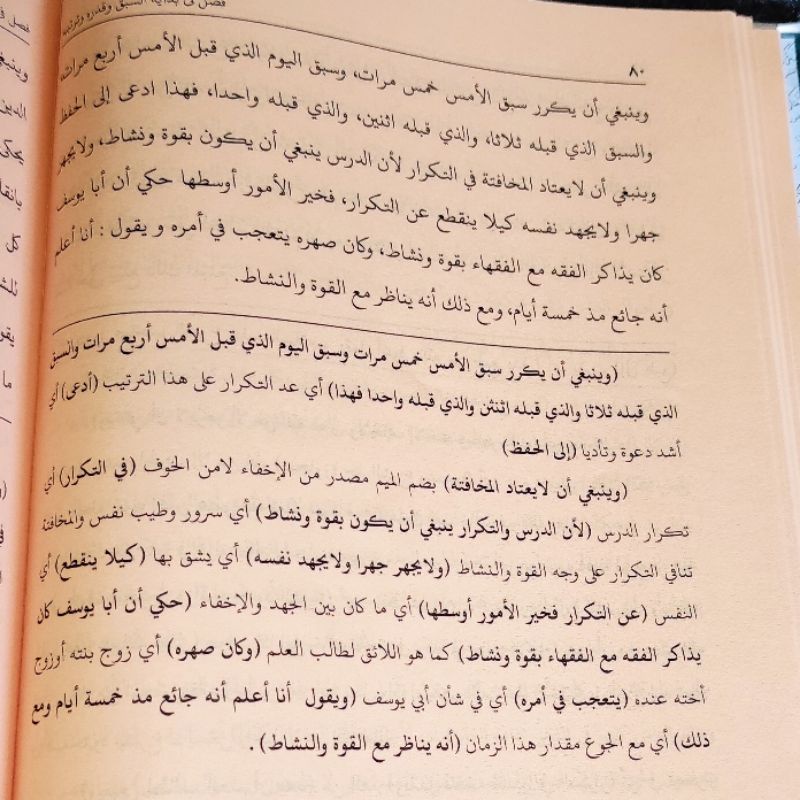 فصل في بداية السبق وقدره وترتيبه
٨٠
وينبغي أن يكرر سبق الأمس خمس مرات، وسبق اليوم الذي قبل الأمس أربع مرات،
والسبق الذي قبله ثلاثا، والذي قبله اثنين، والذي قبله واحدا، فهذا ادعى إلى الحفظ
وينبغي أن لايعتاد المخافتة في التكرار لأن الدرس ينبغي أن يكون بقوة ونشاط، ولايجهر
جهرا ولايجهد نفسه كيلا ينقطع عن التكرار، فخير الأمور أوسطها حكي أن أبا يوسف
كان يذاكر الفقه مع الفقهاء بقوة ونشاط، وكان صهره يتعجب في أمره و يقول : أنا أعلم
أنه جائع مذ خمسة أيام، ومع ذلك أنه يناظر مع القوة والنشاط.
(وينبغي أن يكرر سبق الأمس خمس مرات وسبق اليوم الذي قبل الأمس أربع مرات والسبق
الذي قبله ثلاثا والذي قبله اثنثن والذي قبله واحدا فهذا) أي عد التكرار على هذا الترتيب (أدعى) أي
أشد دعوة وتأديا (إلى الحفظ)
(وينبغي أن لايعتاد المخافتة) بضم الميم مصدر من الإخفاء لامن الخوف (في التكرار) أي
تكرار الدرس (لأن الدرس والتكرار ينبغي أن يكون بقوة ونشاط) أي سرور وطيب نفس والمخافتة
تنافي التكرار على وجه القوة والنشاط (ولايجهر جهرا ولايجهد نفسه) أي يشق بها (كيلا ينقطع) أي
النفس (عن التكرار فخير الأمور أوسطها) أي ما كان بين الجهد والإخفاء (حكي أن أبا يوسف كان
يذاكر الفقه مع الفقهاء بقوة ونشاط) كما هو اللائق لطالب العلم (وكان صهره) أي زوج بنته أوزوج
أخته عنده (يتعجب في أمره) أي في شأن أبي يوسف (ويقول أنا أعلم أنه جائع مذ خمسة أيام ومع
ذلك) أي مع الجوع مقدار هذا الزمان (أنه يناظر مع القوة والنشاط) .